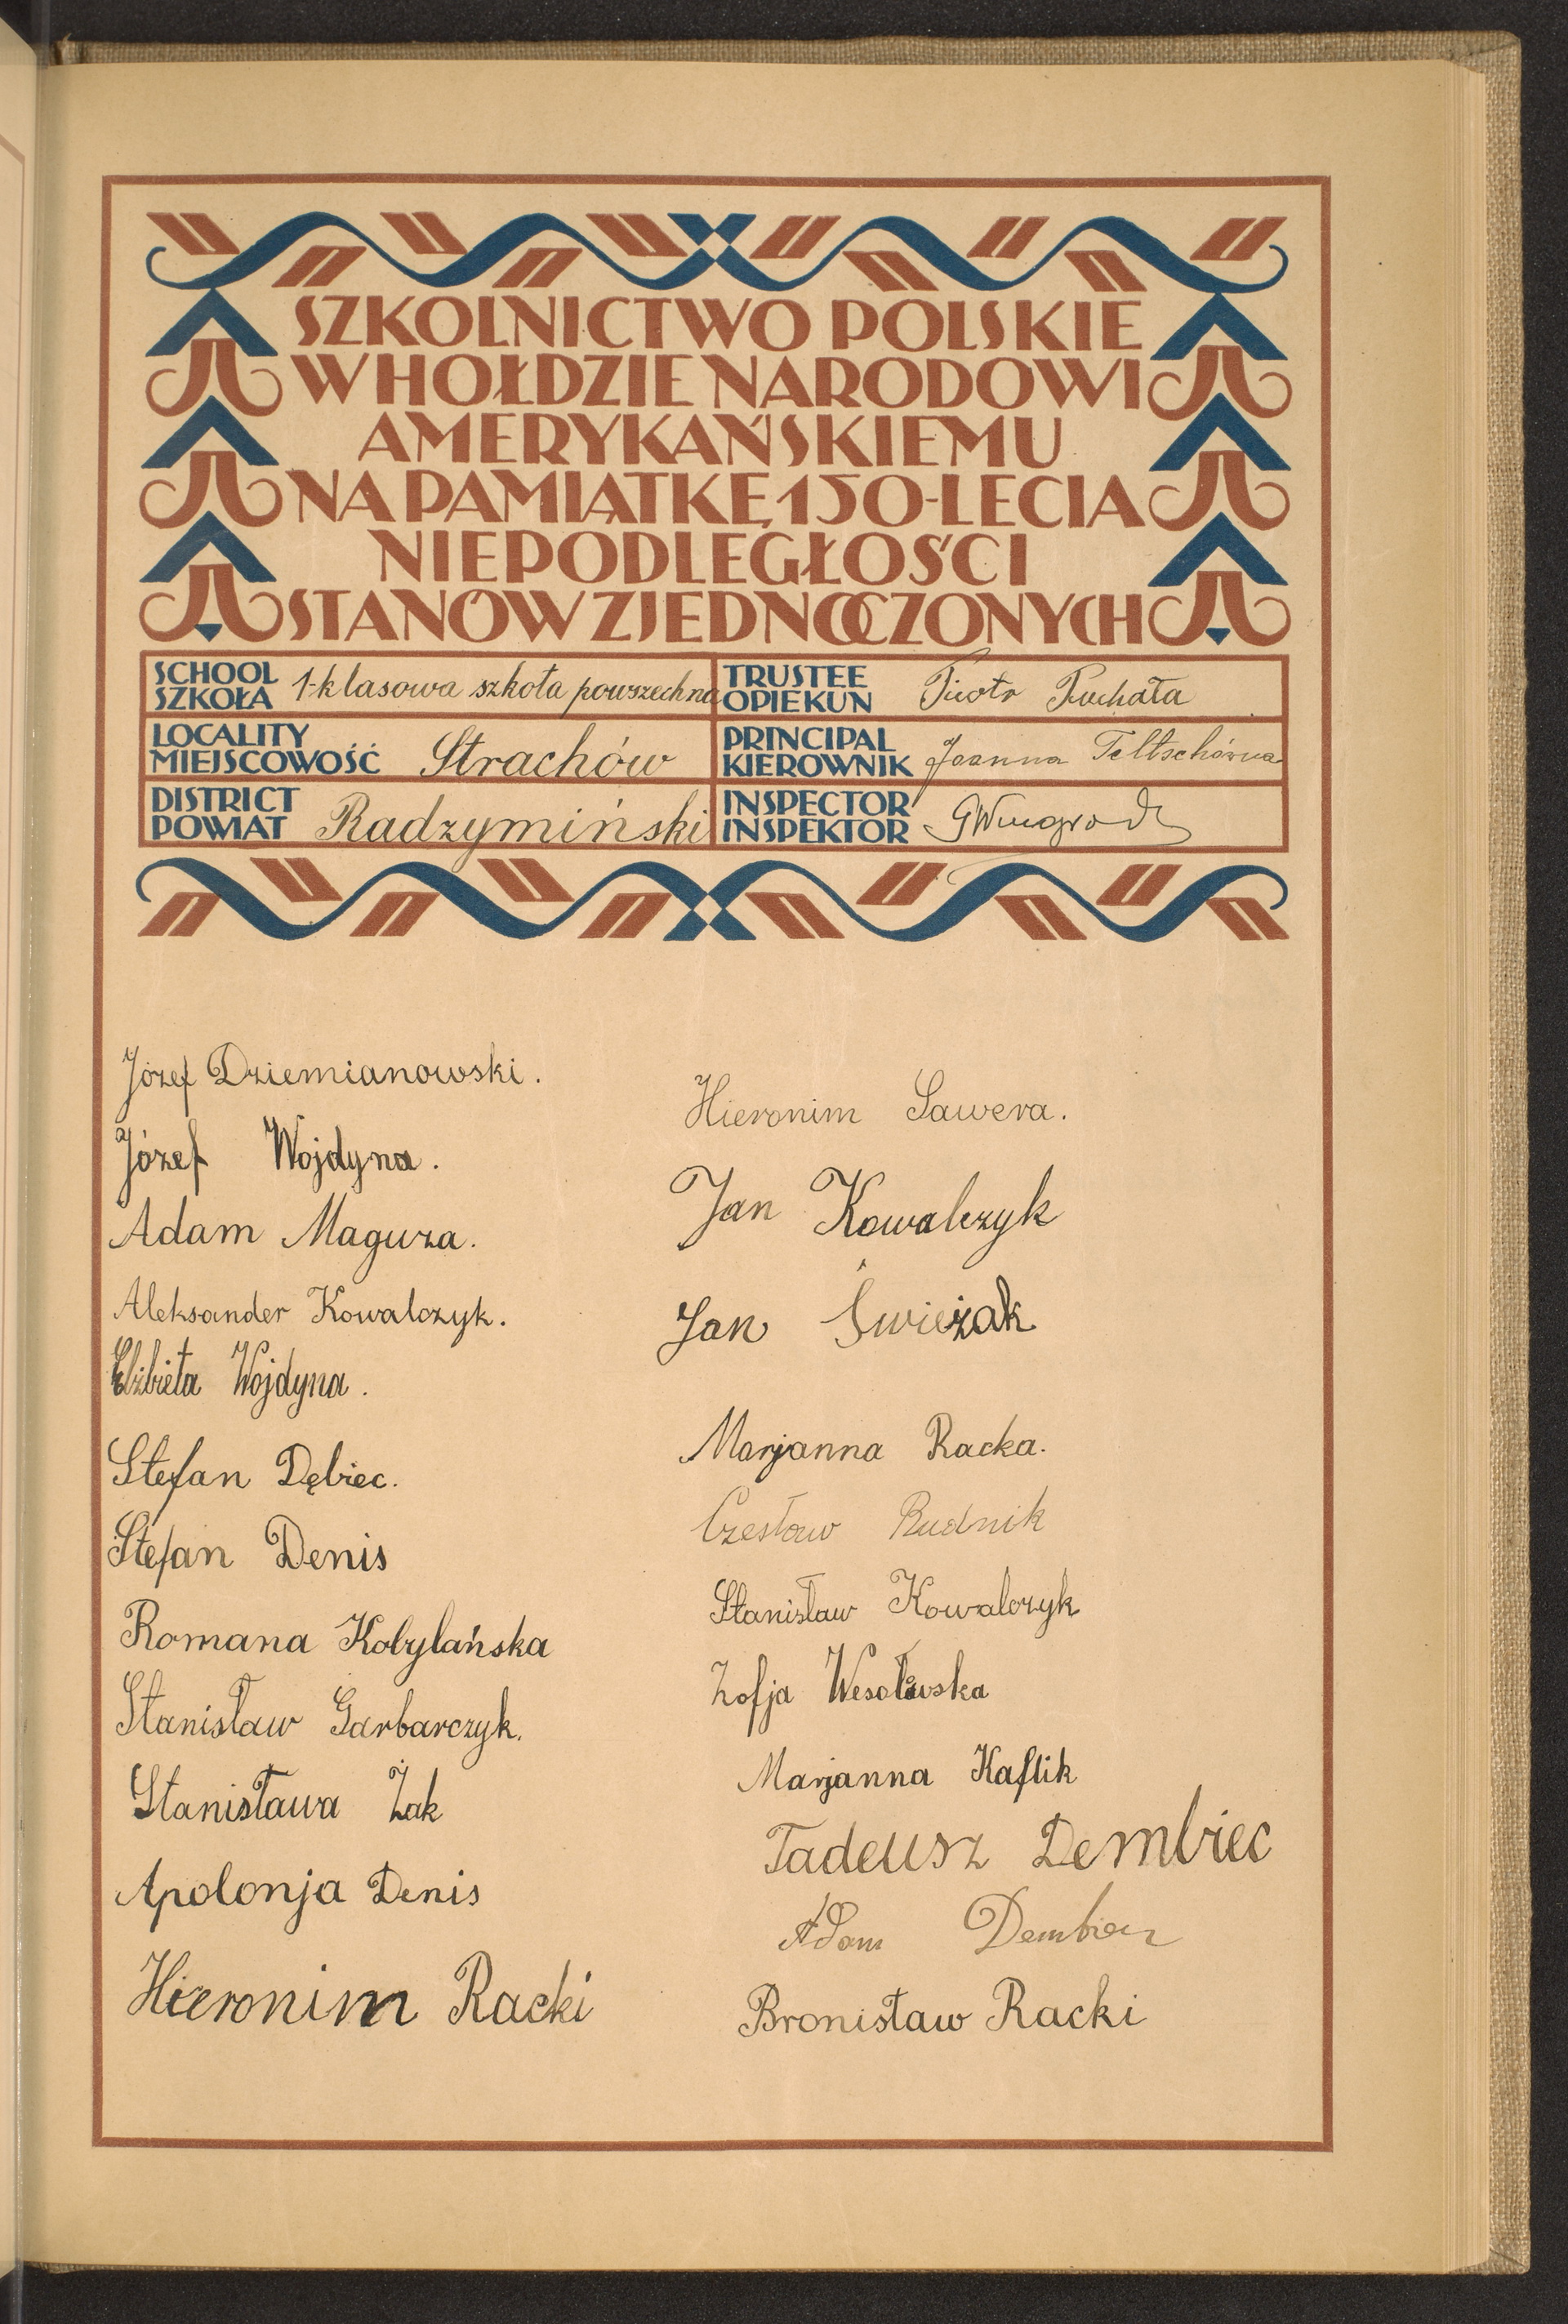 SZKOLNICTWO POLSKIE
W HOŁDZIE NARODOWI
AMERYKAŃSKIEMU
NA PAMIĄTKĘ 150-LECIA
NIEPODLEGŁOŚCI
STANÓW ZJEDNOCZONYCH
SCHOOL
SZKOŁA 1-klasowa szkoła powszechna
TRUSTEE
OPIEKUN Piotr Puchała
LOCALITY
MIEJSCOWOŚĆ Strachów
PRINCIPAL
KIEROWNIK Joanna Teltschówna
DISTRICT
POWIAT Radzymiński
INSPECTOR
INSPEKTOR
Józef Dziemianowski.
Józef Wojdyna.
Adam Magura.
Aleksander Kowalczyk.
Elżbieta Wojdyna.
Stefan Dębiec.
Stefan Denis
Romana Kobylańska
Stanisław Garbarczyk.
Stanisława Żak
Apolonja Denis
Hieronim Racki
Hieronim Sawera.
Jan Kowalczyk
Jan Świeżak
Marjanna Racka.
Czesław Rudnik
Stanisław Kowalczyk
Zofja Wesołowska
Marjanna Kaflik
Tadeusz Dembiec
Adam Dembiec
Bronisław Racki